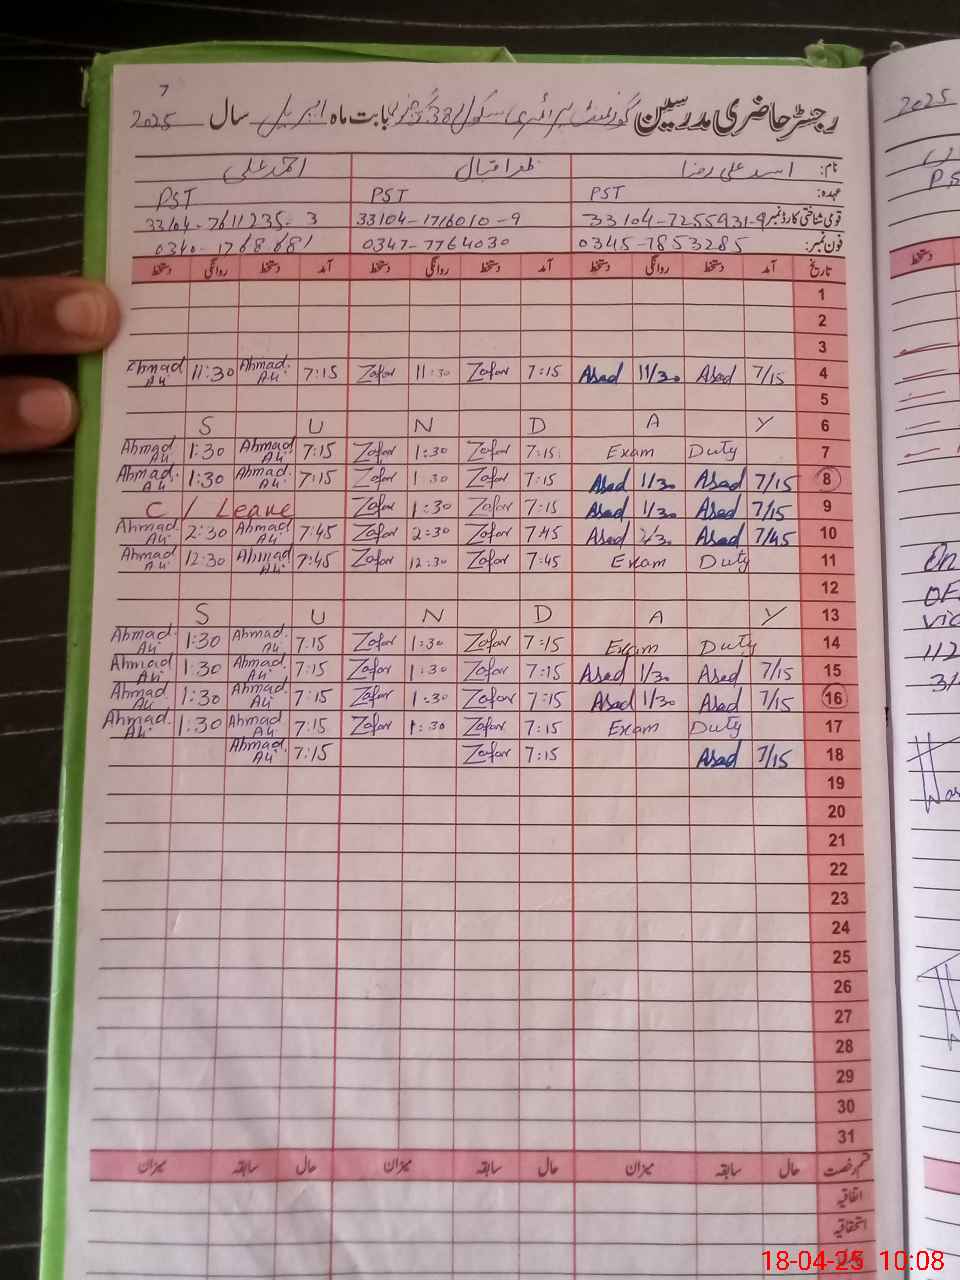 7
رجسٹر حاضری مدرسین گورنمنٹ پرائمری سکول بابت ماہ اپریل سال 2025
نام: اسد علی رضا ظفر اقبال احمد علی
عہدہ: PST PST PST
قومی شناختی کارڈ نمبر 33104-7255931-9 33104-1716010-9 33104-7611235-3
فون نمبر: 0345-7853285 0347-7764030 0340-1768681
تاریخ آمد دستخط روانگی دستخط آمد دستخط روانگی دستخط آمد دستخط روانگی دستخط
1
2
3
Ahmad Ali 11:30 Ahmad Ali 7:15 Zafar 11:30 Zafar 7:15 Asad 11/30 Asad 7/15 4
5
S U N D A Y 6
Ahmad Ali 1:30 Ahmad Ali 7:15 Zafar 1:30 Zafar 7:15 Exam Duty 7
Ahmad Ali 1:30 Ahmad Ali 7:15 Zafar 1:30 Zafar 7:15 Asad 1/30 Asad 7/15 8
C / Leave Zafar 1:30 Zafar 7:15 Asad 1/30 Asad 7/15 9
Ahmad Ali 2:30 Ahmad Ali 7:45 Zafar 2:30 Zafar 7:45 Asad 2/30 Asad 7/45 10
Ahmad Ali 12:30 Ahmad Ali 7:45 Zafar 12:30 Zafar 7:45 Exam Duty 11
12
S U N D A Y 13
Ahmad Ali 1:30 Ahmad Ali 7:15 Zafar 1:30 Zafar 7:15 Exam Duty 14
Ahmad Ali 1:30 Ahmad Ali 7:15 Zafar 1:30 Zafar 7:15 Asad 1/30 Asad 7/15 15
Ahmad Ali 1:30 Ahmad Ali 7:15 Zafar 1:30 Zafar 7:15 Asad 1/30 Asad 7/15 16
Ahmad Ali 1:30 Ahmad Ali 7:15 Zafar 1:30 Zafar 7:15 Exam Duty 17
Ahmad Ali 7:15 Zafar 7:15 Asad 7/15 18
19
20
21
22
23
24
25
26
27
28
29
30
31
قسم رخصت حال سابقہ میزان حال سابقہ میزان حال سابقہ میزان
اتفاقیہ
استحقاقیہ
2025
دستخط
18-04-25 10:08